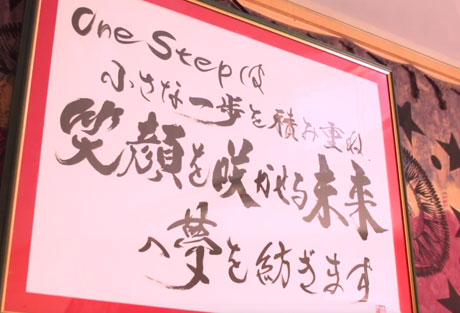 One Stepは
小さな一歩を積み重ね
笑顔を咲かせる未来
へ夢を紡ぎます